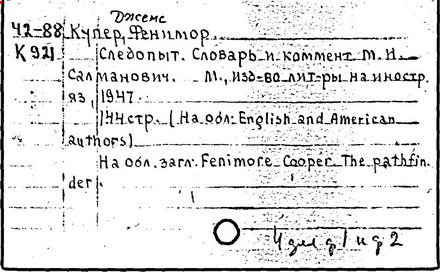 Джемс
42-88 Купер, Фенимор.
К 921 Следопыт. Словарь и коммент М. И.
Салманович. М., Изд-во лит-ры на иностр.
яз, 1947.
144 стр. (На обл: English and American
authors)
На обл. загл: Fenimore Cooper The pathfin.
der.